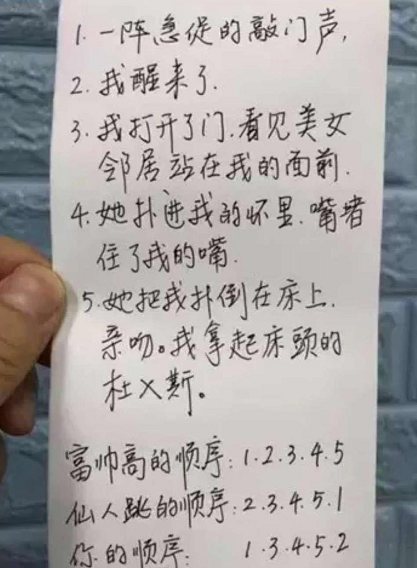 1. 一阵急促的敲门声,
2. 我醒来了.
3. 我打开了门.看见美女
邻居站在我的面前.
4. 她扑进我的怀里.嘴堵
住了我的嘴.
5. 她把我扑倒在床上.
亲吻。我拿起床头的
杜乂斯。
富帅高的顺序:1.2.3.4.5
仙人跳的顺序:2.3.4.5.1
你的顺序: 1.3.4.5.2